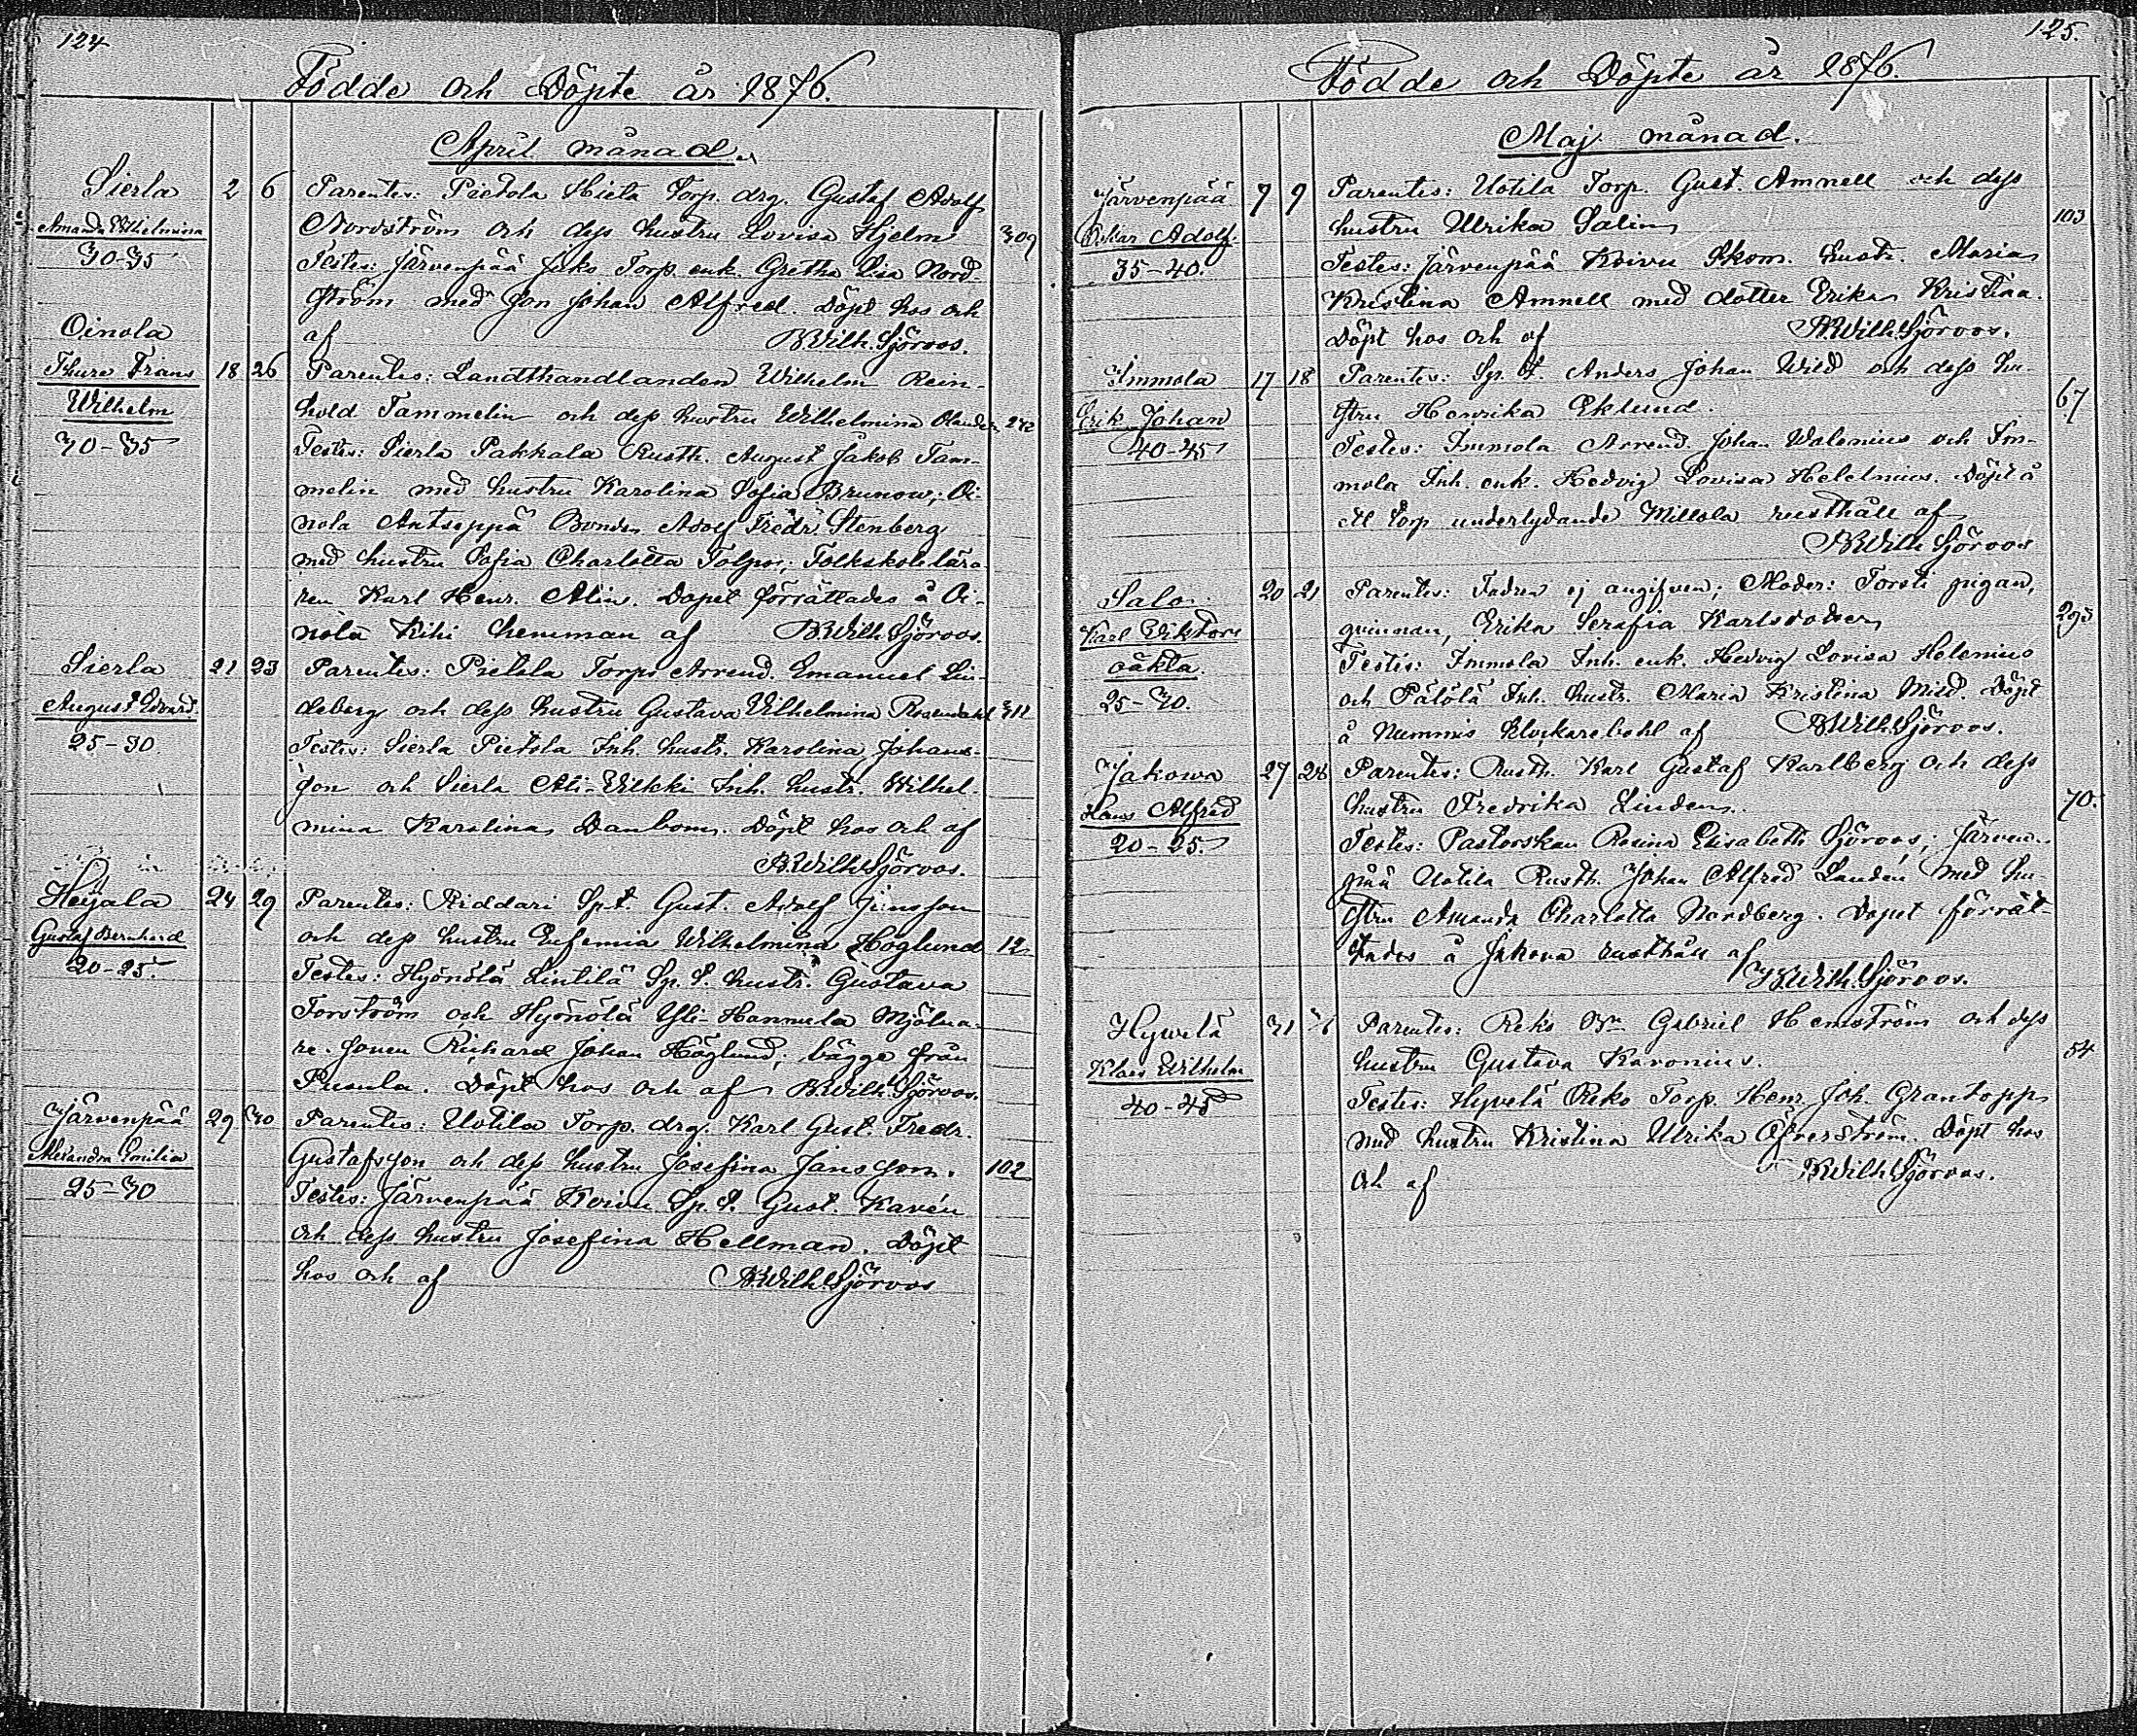 124
Födde och Döpte år 1876.
April månad.
Sierla 2 6 Parentes: Pietola Hieta Torp. drg. Gustaf Adolf
Amanda Wilhelmina Nordström och dess hustru Lovisa Hjelm 309
30-35 Testes: Järvenpää Jaks Torp. enk. Gretha Lisa Nord-
ström med son Johan Alfred. Döpt hos och
Oinola af B.Wilh.Sjöroos.
Thure Frans 18 26 Parentes: Landthandlanden Wilhelm Rein-
Wilhelm hold Tammelin och dess hustru Wilhelmina Olander 272
30-35 Testes: Sierla Pakkala Rusth. August Jakob Tam-
melin med hustru Karolina Sofia Brunow; Oi-
nola Antseppä Bonden Adolf Fredr. Stenberg
med hustru Sofia Charlotta Tolpo; Folkskolelära-
ren Karl Henr. Alin. Dopet förrättades å Oi-
nola Kihi hemman af B.Wilh.Sjöroos.
Sierla 21 23 Parentes: Pietola Torps Arrend. Emanuel Lin-
August Edvard deberg och dess hustru Gustava Wilhelmina Rosendahl 311
25-30. Testes: Sierla Pietola Inh. hustr. Karolina Johans-
son och Sierla Ali-Erkki Inh. hustr. Wilhel-
mina Karolina Danbom. Döpt hos och af
B.Wilh.Sjöroos.
Heijala 24 29 Parentes: Riddari Spt. Gust. Adolf Jinsson
Gustaf Bernhard och dess hustru Eufemia Wilhelmina Höglund 12
20-25. Testes: Hyönölä Lintilä Sp. t. hustr. Gustava
Forström och Hyönölä Yli-Hannula Mjölna-
re-sonen Richard Johan Höglund; bägge från
Pusula. Döpt hos och af B.Wilh.Sjöroos.
Järvenpää 29 30 Parentes: Uotila Torp. drg. Karl Gust. Fredr.
Alexandra Emilia Gustafsson och dess hustru Josefina Jansson. 102
25-30 Testes: Järvenpää Koivu Sp. t. Gust. Kavén
och dess hustru Josefina Hellman. Döpt
hos och af B.Wilh.Sjöroos
125.
Födde och Döpte år 1876.
Maj månad.
Järvenpää 7 9 Parentes: Uotila Torp. Gust. Amnell och dess
Oskar Adolf. hustru Ulrika Salin 103
35-40. Testes: Järvenpää Koivu Skom. hustr. Maria
Kristina Amnell med dotter Erika Kristina.
Döpt hos och af B.Wilh.Sjöroos.
Immola 17 18 Parentes: Sp. t. Anders Johan Wild och dess hu-
Erik Johan stru Henrika Eklund. 67
40-45 Testes: Immola Arrend. Johan Walenius och Im-
mola Inh. enk. Hedvig Lovisa Helenius. Döpt å
ett torp underlydande Millola rusthåll af
B.Wilh.Sjöroos
Salo 20 21 Parentes: Fadren ej angifven; Moder: Torsti pigan,
Karl Wiktor qvinnan, Erika Serafia Karlsdotter 295
oäkta. Testes: Immola Inh. enk. Hedvig Lovisa Helenius
25-30. och Pälölä Inh. hustr. Maria Kristina Mild. Döpt
å Nummis klockarebohl af B.Wilh.Sjöroos.
Jakowa 27 28 Parentes: Rusth. Karl Gustaf Karlberg och dess
Hans Alfred hustru Fredrika Linden. 70.
20-25. Testes: Pastorskan Rosina Elisabeth Sjöroos; Järven-
pää Uotila Rusth. Johan Alfred Landén med hu-
stru Amanda Charlotta Nordberg. Dopet förrät-
tades å Jakova rusthåll af
B.Wilh.Sjöroos.
Hyvelä 31 Parentes: Reko Gabriel Hemström och dess
Klaes Wilhelm hustru Gustava Karonius. 54
40-45 Testes: Hyvelä Reko Torp. Henr. Joh. Grantopp
med hustru Kristina Ulrika Öfverström. Döpt hos
och af B.Wilh.Sjöroos.